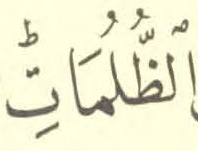 الْظُّلُمَاتِؕ